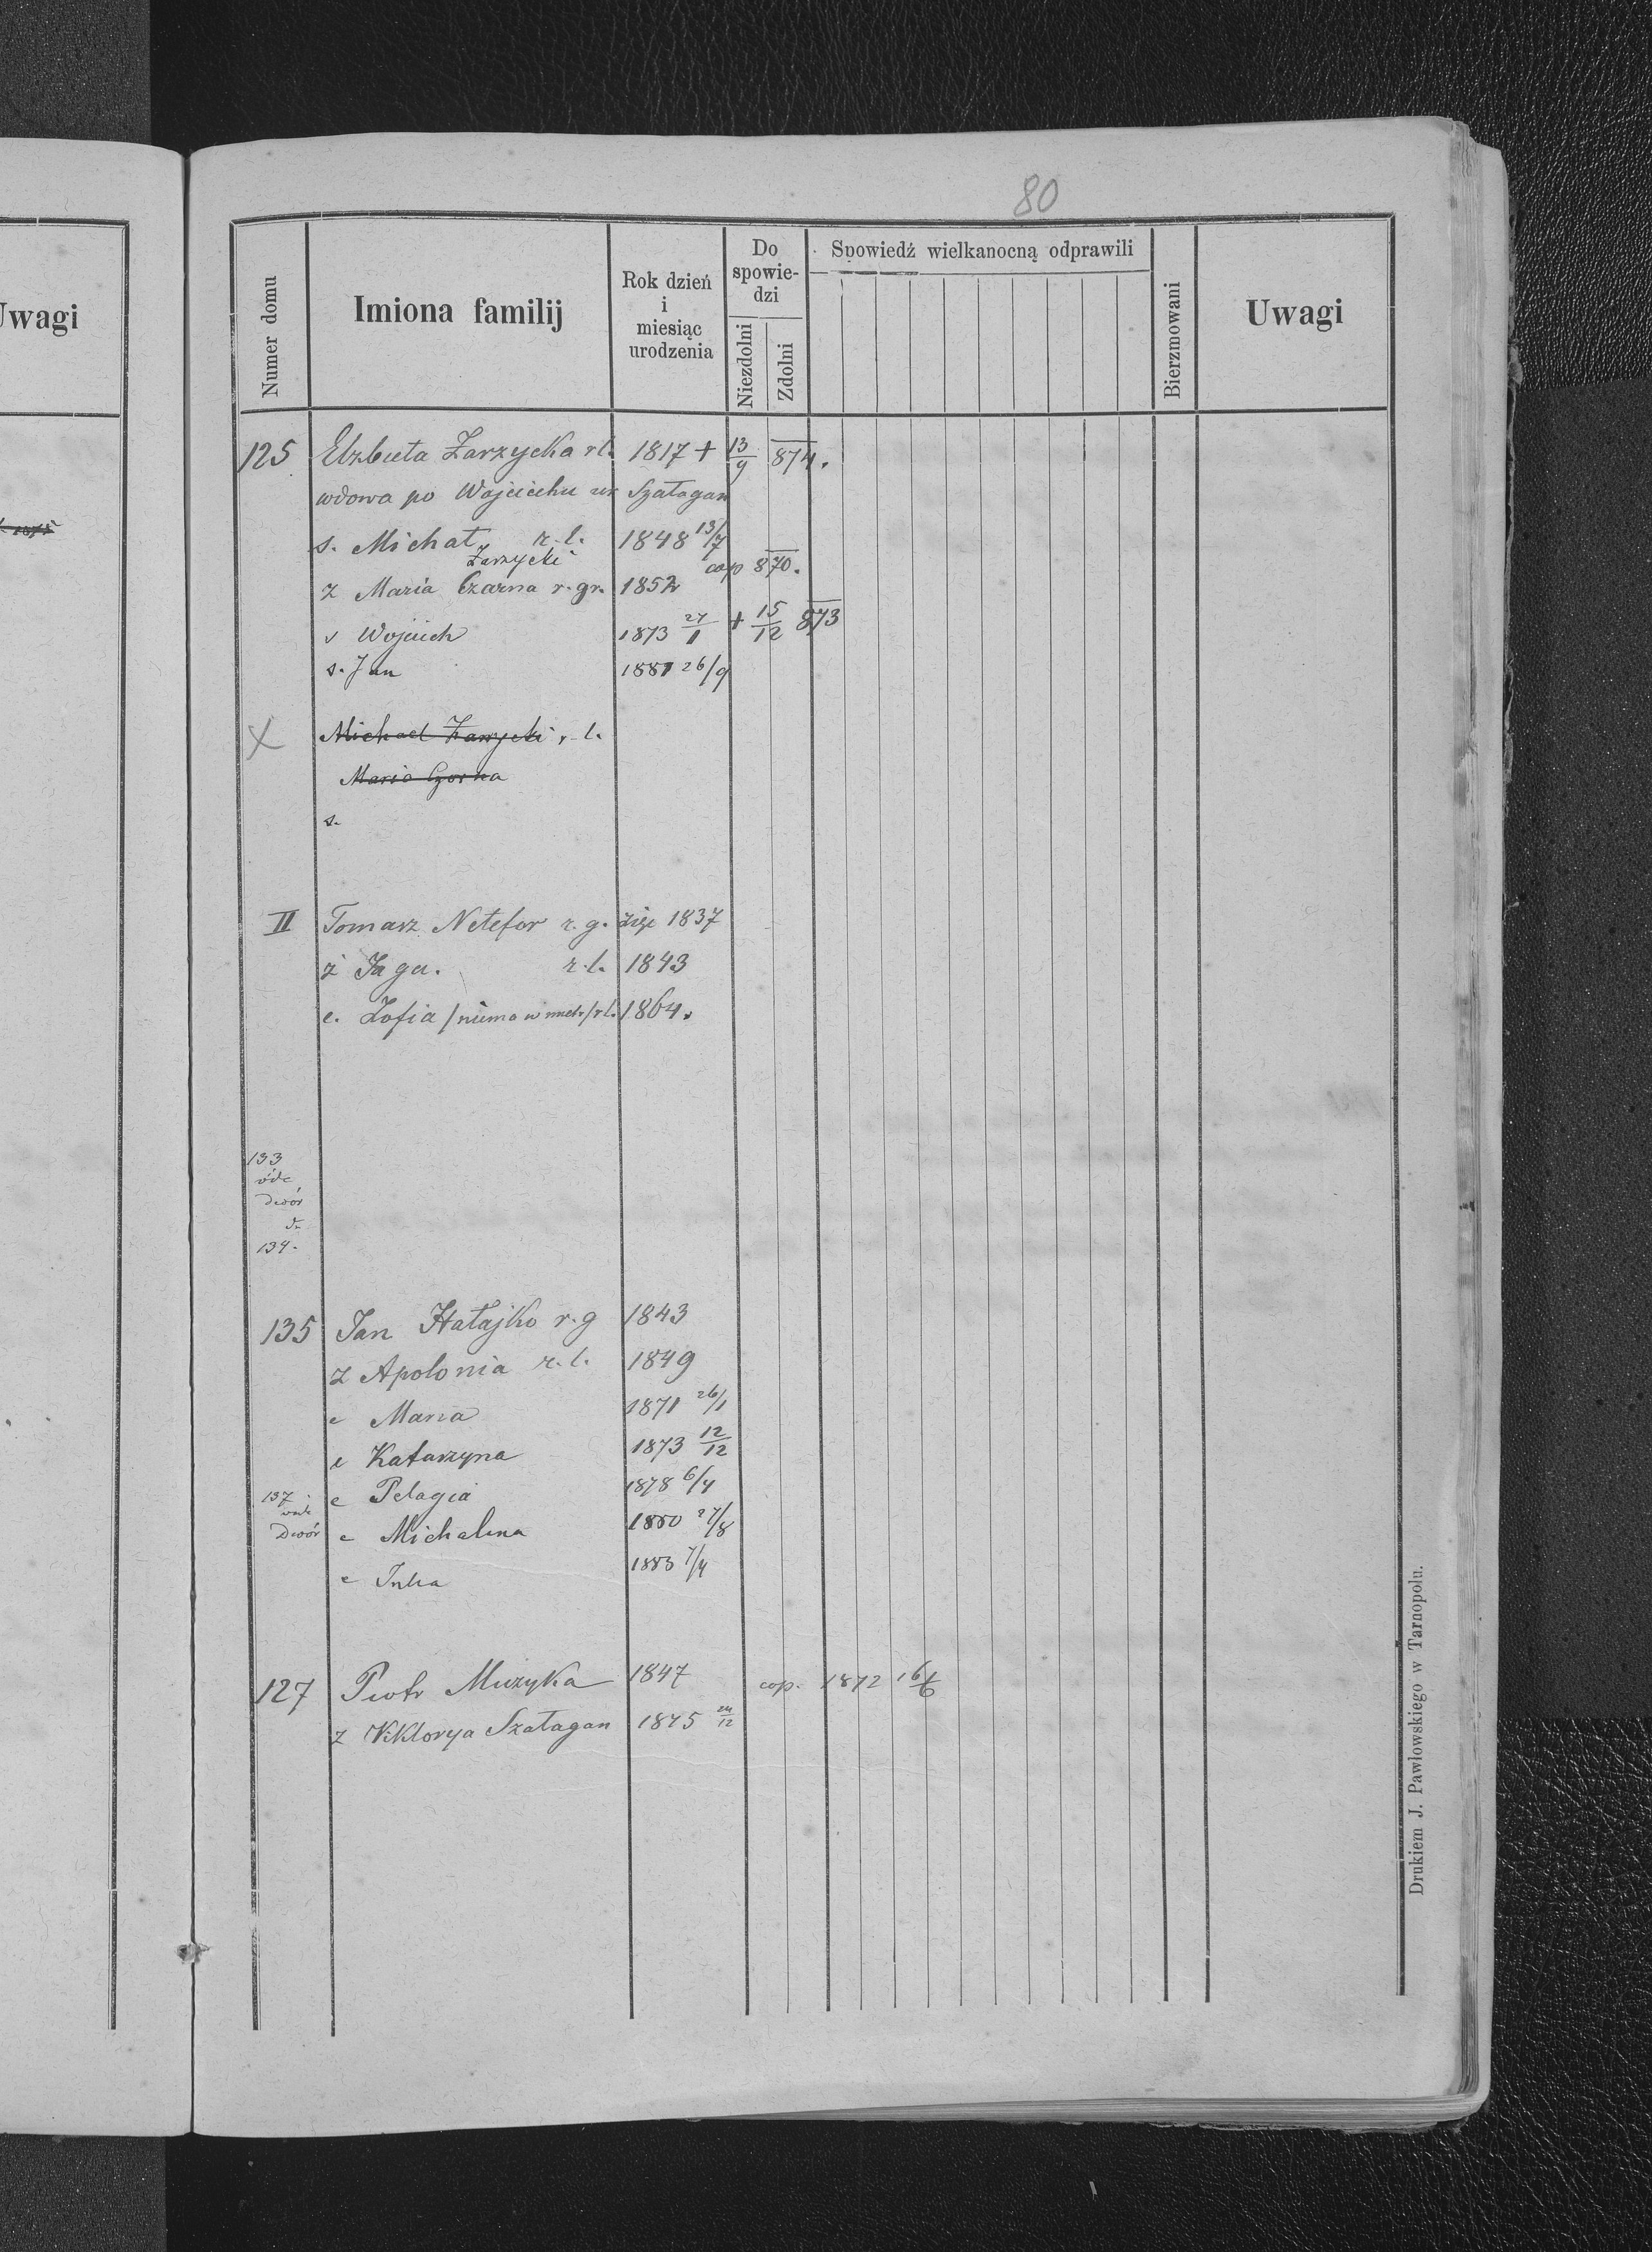 Uwagi
80
Numer domu
Imiona familij
Rok dzień
i
miesiąc
urodzenia
Do
spowie-
dzi
Niezdolni
Zdolni
Spowiedź wielkanocną odprawili
Bierzmowani
Uwagi
125 Elzbieta Zarzycka r l. 1817 + 13/9 874.
wdowa po Wojciechu ur Szałagan
s. Michał Zarzycki r. l. 1848 13/7
cop 870.
z Maria Czarna r. gr. 1852
s Wojciech 1873 27/1 + 15/12 873
s. Jan 1881 26/9
X Michael Zarzycki r. l.
Maria Czorna
s.
II Tomasz Netefor r. g. zięć 1837
ż Jaga. r. l. 1843
c. Zofia /niema w metr/ r l. 1864.
133
vide
Dwór
134.
135 Jan Hałajko r. g 1843
z Apolonia r. l. 1849
c Maria 1871 26/1
c Katarzyna 1873 12/12
137 c Pelagia 1878 6/4
vide
Dwór c Michalina 1880 27/8
c Julia 1883 7/4
127 Piotr Muzyka 1847 cop. 1872 16/6
z Viktorya Szałagan 1875 /12
Drukiem J. Pawłowskiego w Tarnopolu.